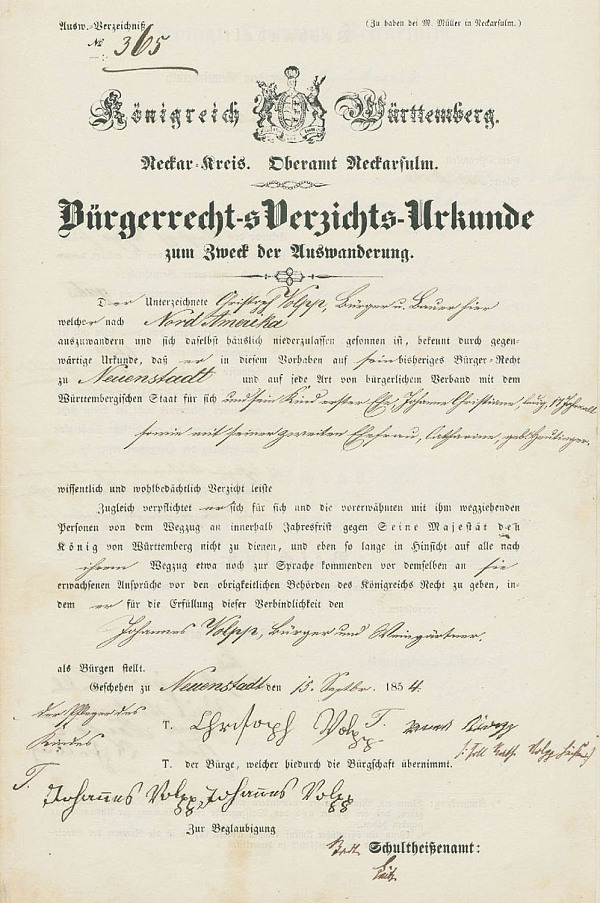 Ausw.-Verzeichniß
(Zu haben bei M. Müller in Neckarsulm.)
№ 365
Königreich Württemberg.
Neckar-Kreis. Oberamt Neckarsulm.
Bürgerrecht-sVerzichts-Urkunde
zum Zweck der Auswanderung.
Der Unterzeichnete Christoph Volpp, Bürger u. Bauer hier
welcher nach Nord Amerika
auszuwandern und sich daselbst häuslich niederzulassen gesonnen ist, bekennt durch gegen-
wärtige Urkunde, daß er in diesem Vorhaben auf sein bisheriges Bürger-Recht
zu Neuenstadt und auf jede Art von bürgerlichem Verband mit dem
Württembergischen Staat für sich und sein Kind erster Ehe, Johanne Christiane,
sowie mit seiner zweiten Ehefrau, Catharine, geb.
wissentlich und wohlbedächtlich Verzicht leiste
Zugleich verpflichtet er sich für sich und die vorerwähnten mit ihm wegziehenden
Personen von dem Wegzug an innerhalb Jahresfrist gegen Seine Majestät den
König von Württemberg nicht zu dienen, und eben so lange in Hinsicht auf alle nach
ihrem Wegzug etwa noch zur Sprache kommenden vor demselben an sie
erwachsenen Ansprüche vor den obrigkeitlichen Behörden des Königreichs Recht zu geben, in-
dem er für die Erfüllung dieser Verbindlichkeit den
Johannes Volpp, Bürger und Weingärtner.
als Bürgen stellt.
Geschehen zu Neuenstadt den 15. Septbr. 1854.
der Pfleger des
Kindes
T. Christoph Volpp T.
T. der Bürge, welcher hiedurch die Bürgschaft übernimmt.
T. Johannes Volpp, Johannes Volpp
Zur Beglaubigung
Schultheißenamt: